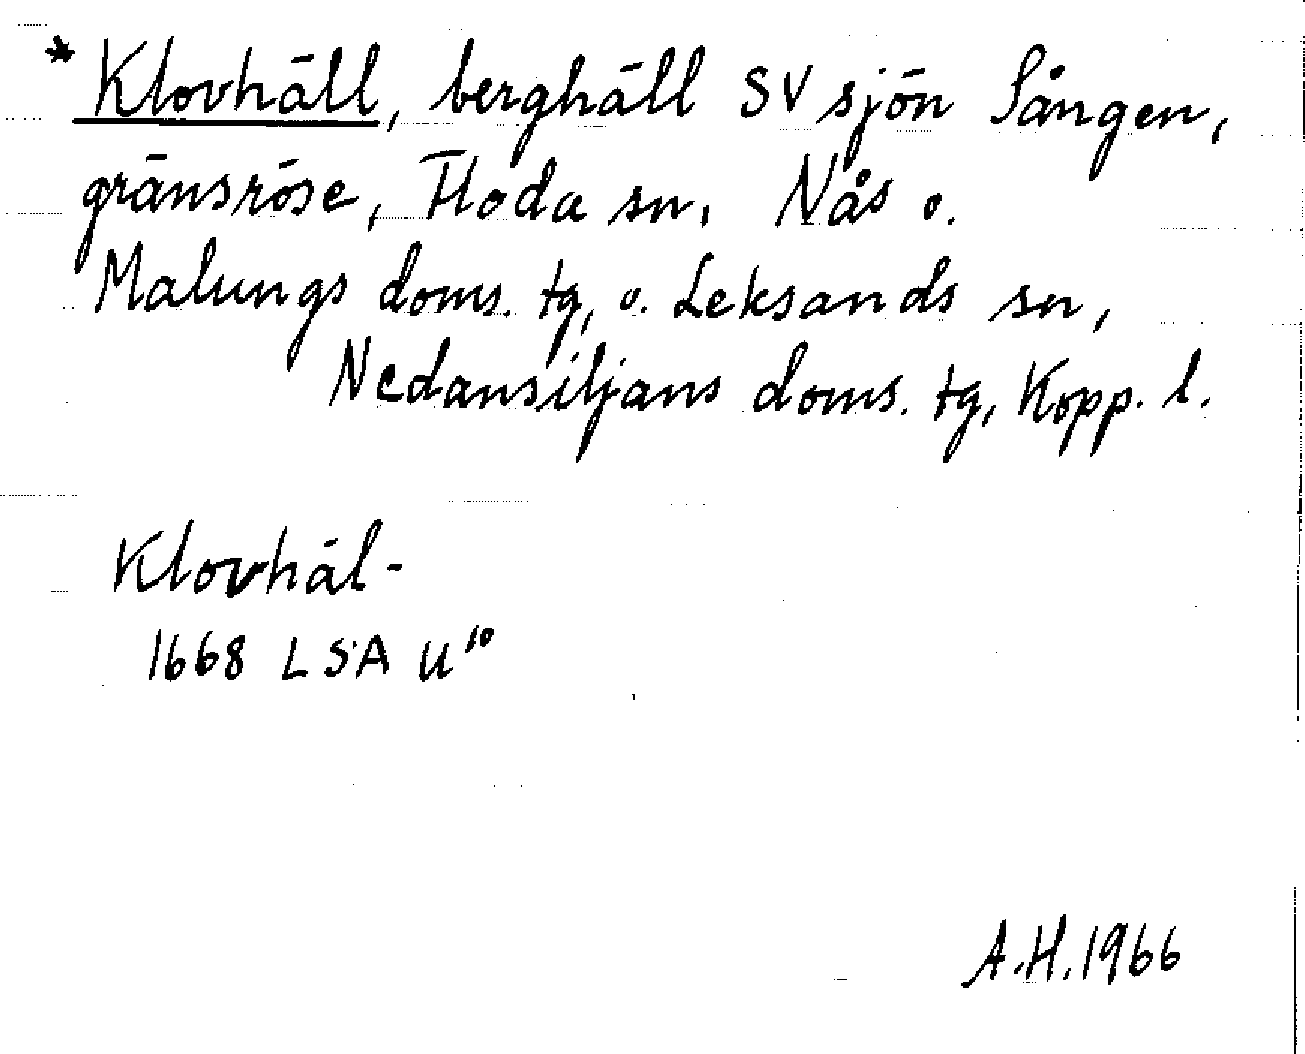 * Klovhäll, berghäll SV sjön Sången,
gränsröse, Floda sn, Nås o.
Malungs doms. tg, o. Leksands sn,
Nedansiljans doms. tg, Kopp. l.
Klovhäl-
1668 LSA U¹⁰
A.H. 1966